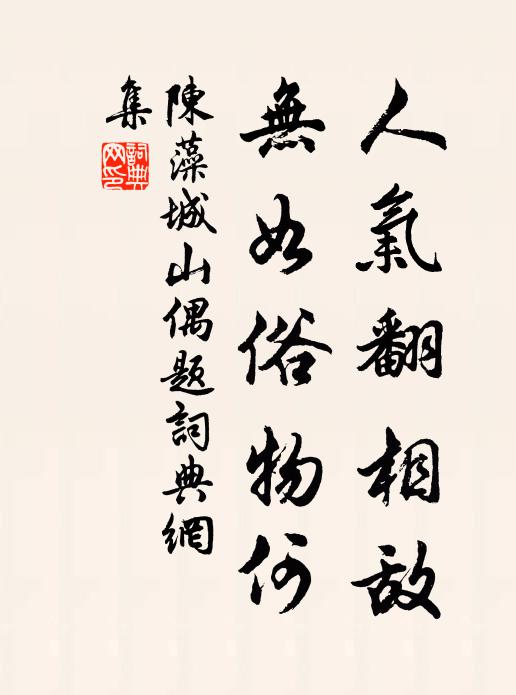 人氣翻相敵
無如俗物何
陳藻城山偶題詞典網
集
詞典網印